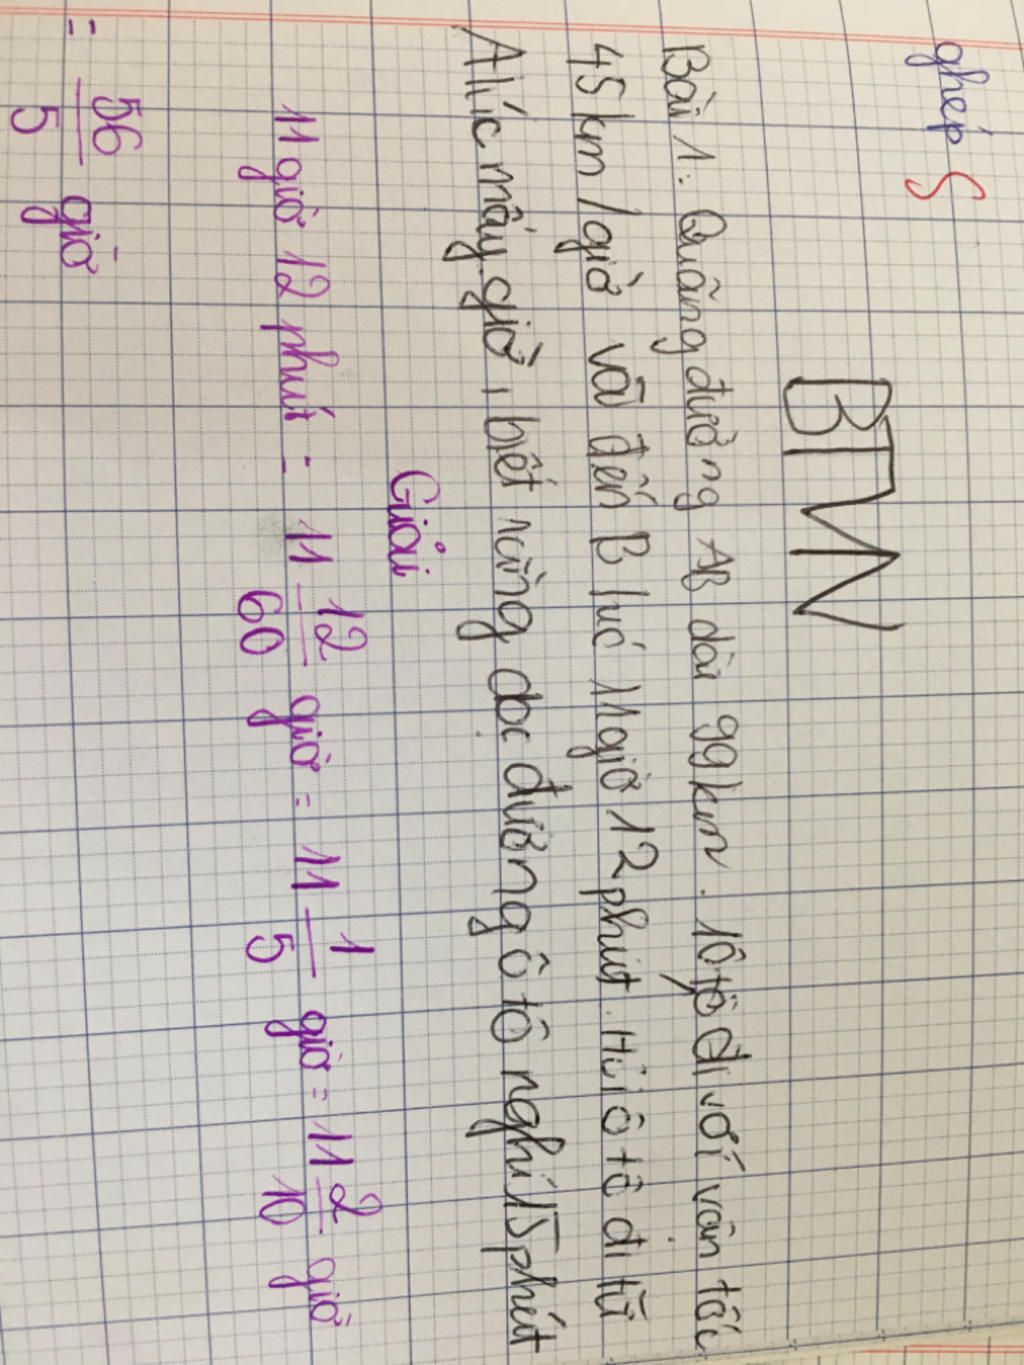 ghép S
BTVN
Bài 1: Quãng đường AB dài 99km. 1 ô tô đi với vận tốc
45km/giờ và đến B lúc 11 giờ 12 phút. Hỏi ô tô đi từ
A lúc mấy giờ, biết rằng dọc đường ô tô nghỉ 15 phút
Giải
11 giờ 12 phút = 11 12/60 giờ = 11 1/5 giờ = 11 2/10 giờ
= 56/5 giờ